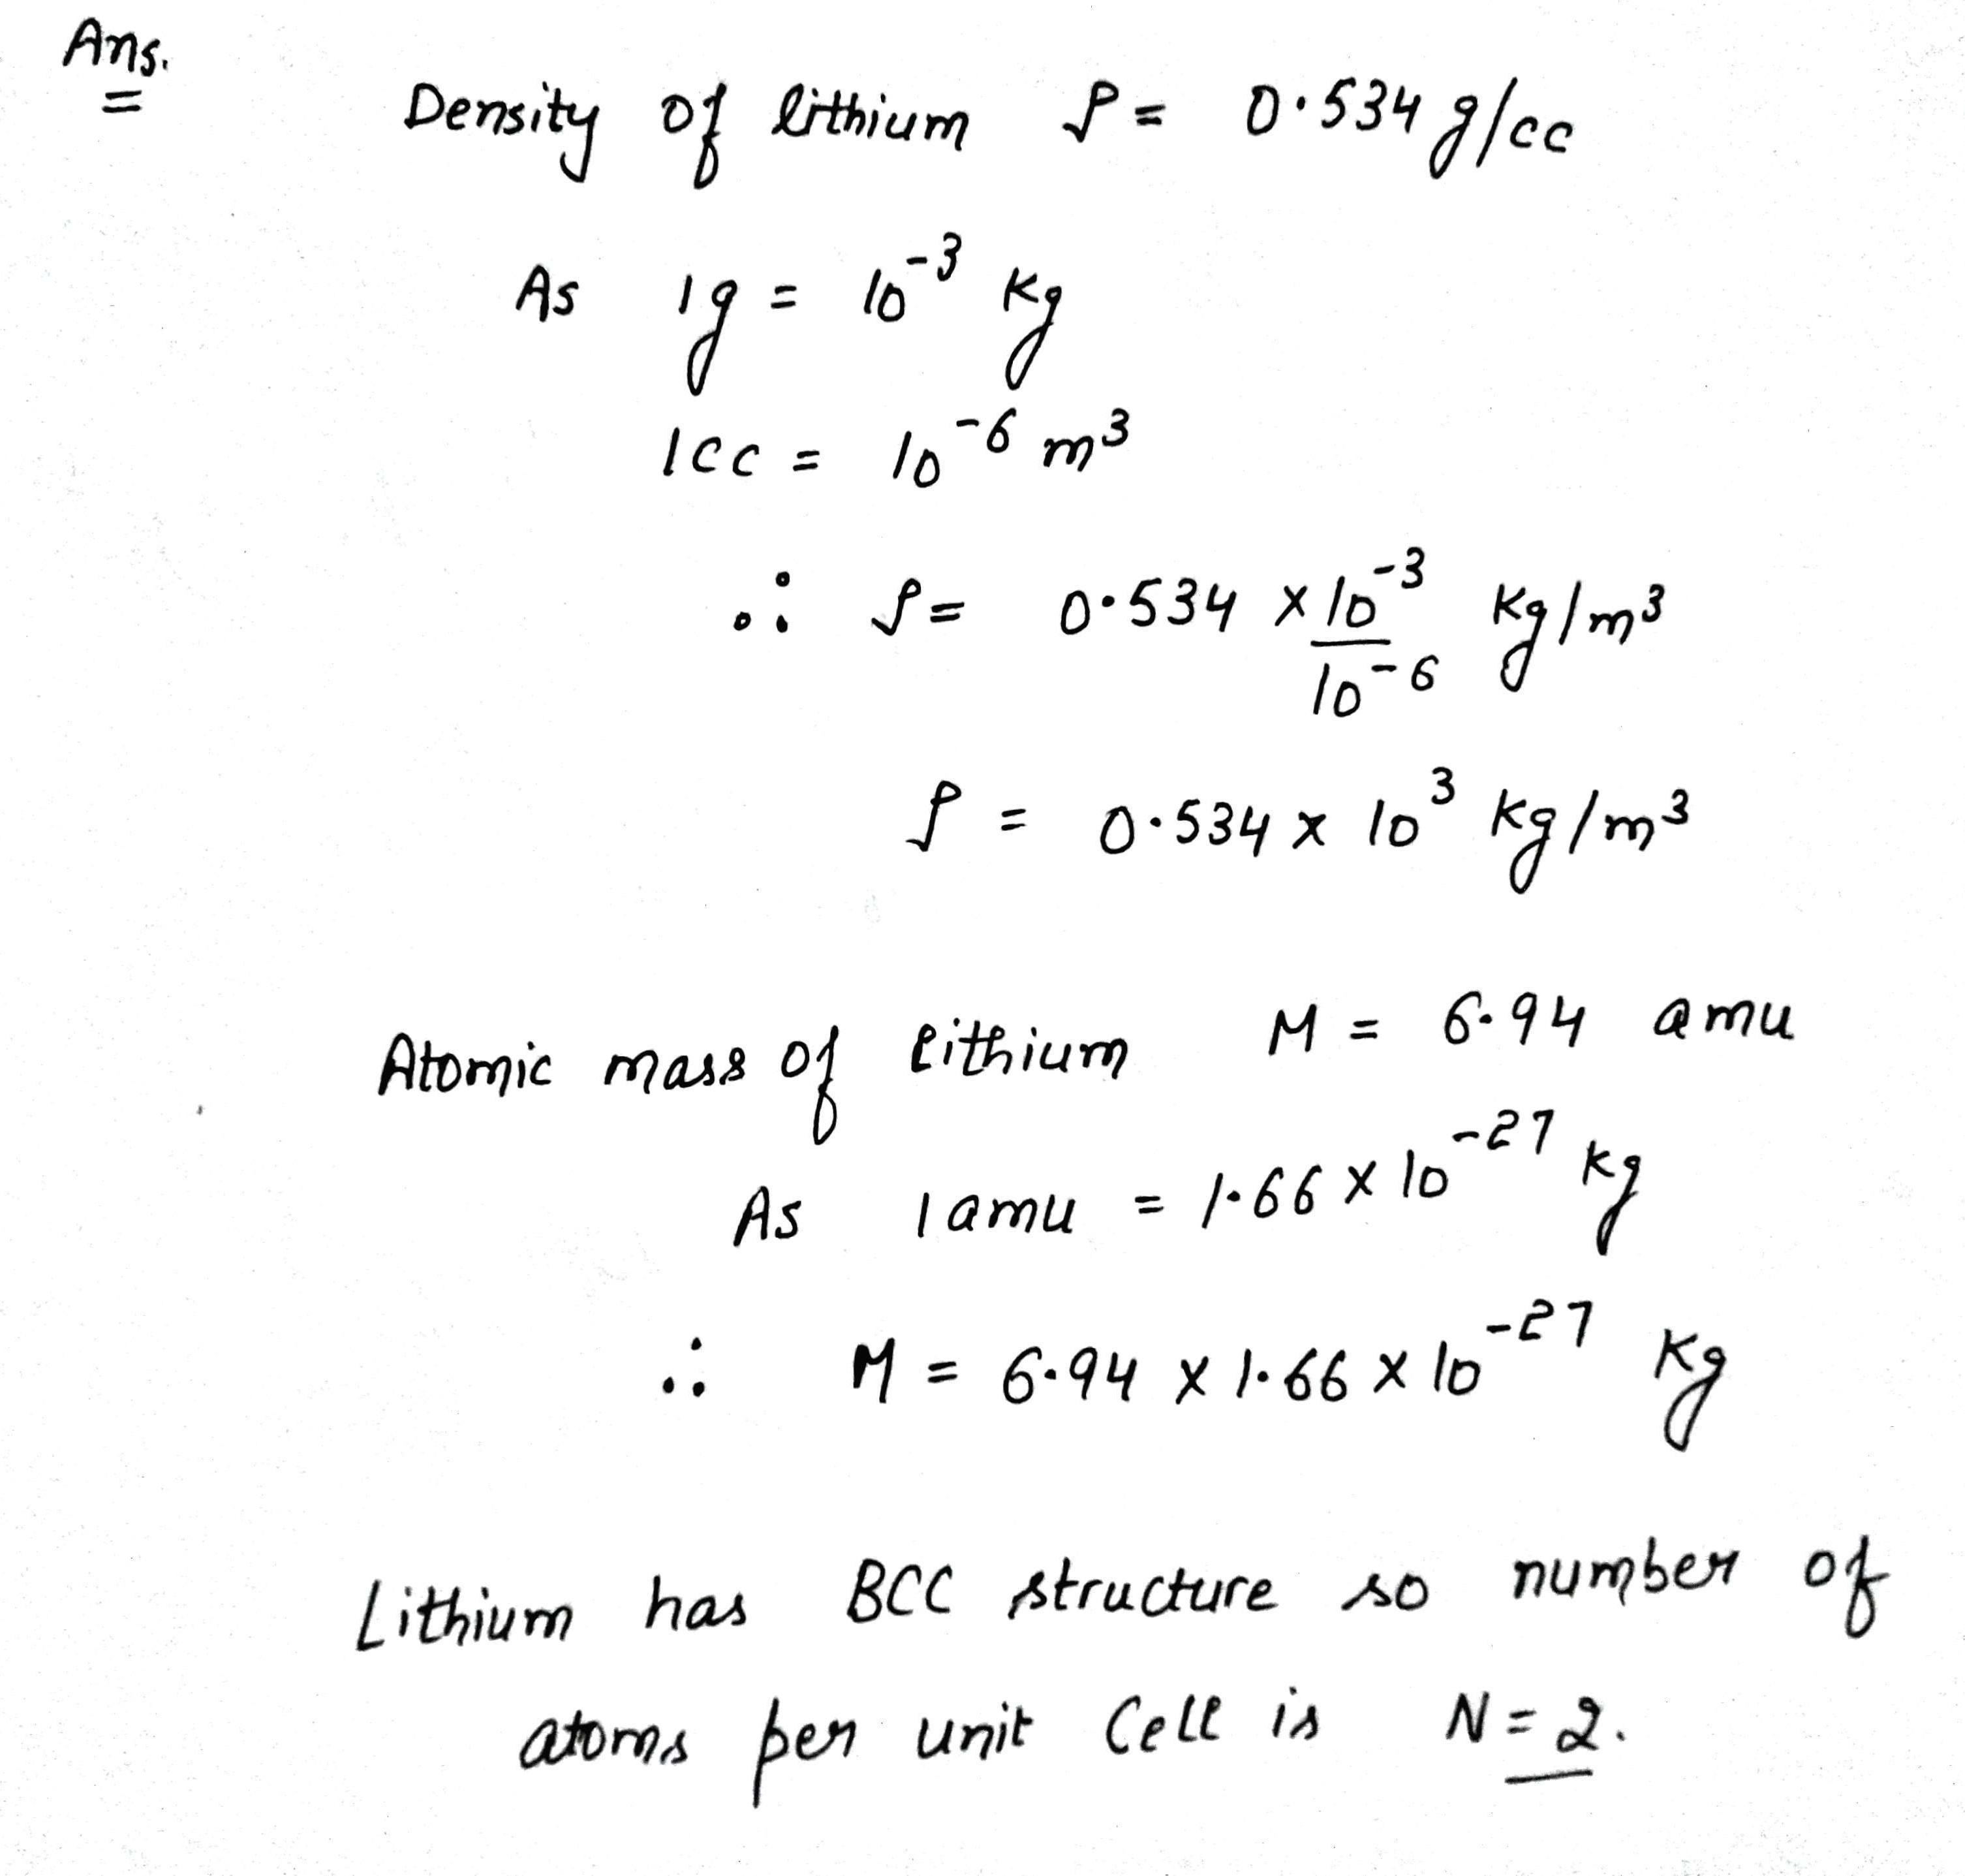 Ans.
Density of lithium ρ = 0.534 g/cc
As 1g = 10⁻³ Kg
1cc = 10⁻⁶ m³
∴ ρ = 0.534 × 10⁻³ / 10⁻⁶ Kg/m³
ρ = 0.534 × 10³ Kg/m³
Atomic mass of lithium M = 6.94 amu
As 1 amu = 1.66 × 10⁻²⁷ Kg
∴ M = 6.94 × 1.66 × 10⁻²⁷ Kg
Lithium has BCC structure so number of
atoms per unit Cell is N = 2.